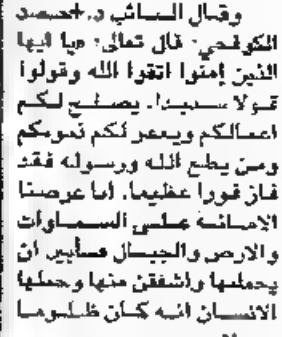 وقال النائب د. احمد
الكوفحي: قال تعالى: «يا ايها
الذين إمنوا اتقوا الله وقولوا
قولا سديدا. يصلح لكم
اعمالكم ويغفر لكم ذنوبكم
ومن يطع الله ورسوله فقد
فاز فوزا عظيما. انا عرضنا
الامانة على السماوات
والارض والجبال فأبين ان
يحملنها واشفقن منها وحملها
الانسان انه كان ظلوما